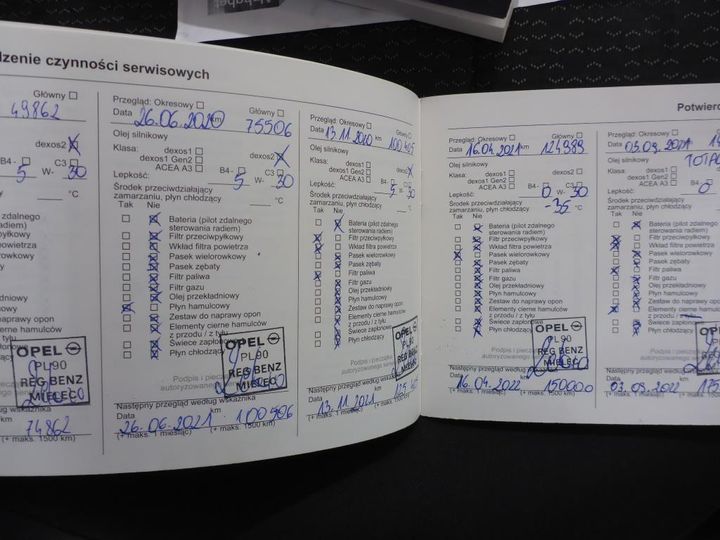 dzenie czynności serwisowych
Główny
49862
dexos2
B4 - C3
5 W- 30
zdalnego
°C
płyn hamulcowy
OPEL
PL90
REG BENZ
MIELEC
wskaźnika
km
74862
(+ maks. 1500 km)
Przegląd: Okresowy
Główny
Data 26.06.2020 km 75506
Olej silnikowy
Klasa: dexos1 dexos2
dexos1 Gen2
ACEA A3 B4 - C3
Lepkość: 5 W- 30
Środek przeciwdziałający
zamarzaniu, płyn chłodzący °C
Tak Nie
Bateria (pilot zdalnego
sterowania radiem)
Filtr przeciwpyłkowy
Wkład filtra powietrza
Pasek wielorowkowy
Pasek zębaty
Filtr paliwa
Filtr gazu
Olej przekładniowy
Płyn hamulcowy
Zestaw do naprawy opon
Elementy cierne hamulców
z przodu / z tyłu
Świece zapłonowe
Płyn chłodzący
OPEL
PL90
REG BENZ
MIELEC
Podpis i pieczątka
autoryzowanego
Następny przegląd według wskazania
Data km
26.06.2021 100506
(+ maks. 1 miesiąc) (+ maks. 1500 km)
Przegląd: Okresowy
Główny
Data 13.11.2020 km
Olej silnikowy
Klasa: dexos1
dexos1 Gen2
ACEA A3 B4 - C3
Lepkość: 5 W- 30
Środek przeciwdziałający
zamarzaniu, płyn chłodzący °C
Tak Nie
Bateria (pilot zdalnego
sterowania radiem)
Filtr przeciwpyłkowy
Wkład filtra powietrza
Pasek wielorowkowy
Pasek zębaty
Filtr paliwa
Filtr gazu
Olej przekładniowy
Płyn hamulcowy
Zestaw do naprawy opon
Elementy cierne hamulców
z przodu / z tyłu
Świece zapłonowe
Płyn chłodzący
OPEL
PL90
MIELEC
Następny przegląd według
Data
13.11.2021
(+ maks. 1 miesiąc) (+ maks. 1500 km)
Potwierd
Przegląd: Okresowy
Główny
Data 16.04.2021 km 124989
Olej silnikowy
Klasa: dexos1 dexos2
dexos1 Gen2
ACEA A3 B4 - C3
Lepkość: 0 W- 30
Środek przeciwdziałający
zamarzaniu, płyn chłodzący -35 °C
Tak Nie
Bateria (pilot zdalnego
sterowania radiem)
Filtr przeciwpyłkowy
Wkład filtra powietrza
Pasek wielorowkowy
Pasek zębaty
Filtr paliwa
Filtr gazu
Olej przekładniowy
Płyn hamulcowy
Zestaw do naprawy opon
Elementy cierne hamulców
z przodu / z tyłu
Świece zapłonowe
Płyn chłodzący
OPEL
PL90
REG BENZ
MIELEC
Podpis i pieczątka
autoryzowanego
Następny przegląd według wskazania
Data km
16.04.2022 150000
(+ maks. 1 miesiąc) (+ maks. 1500 km)
Przegląd: Okresowy
Data 03.09.2021
Olej silnikowy TOTAL
Klasa: dexos1
dexos1 Gen2
ACEA A3
Lepkość: 0
Środek przeciwdziałający
zamarzaniu, płyn chłodzący
Tak Nie
Bateria (pilot zdalnego
sterowania radiem)
Filtr przeciwpyłkowy
Wkład filtra powietrza
Pasek wielorowkowy
Pasek zębaty
Filtr paliwa
Filtr gazu
Olej przekładniowy
Płyn hamulcowy
Zestaw do naprawy opon
Elementy cierne hamulców
z przodu / z tyłu
Świece zapłonowe
Płyn chłodzący
OPEL
PL90
REG BE
MIEL
Podpis i
autoryzowanego
Następny przegląd według
Data
03.09.2022 175
(+ maks. 1 miesiąc)